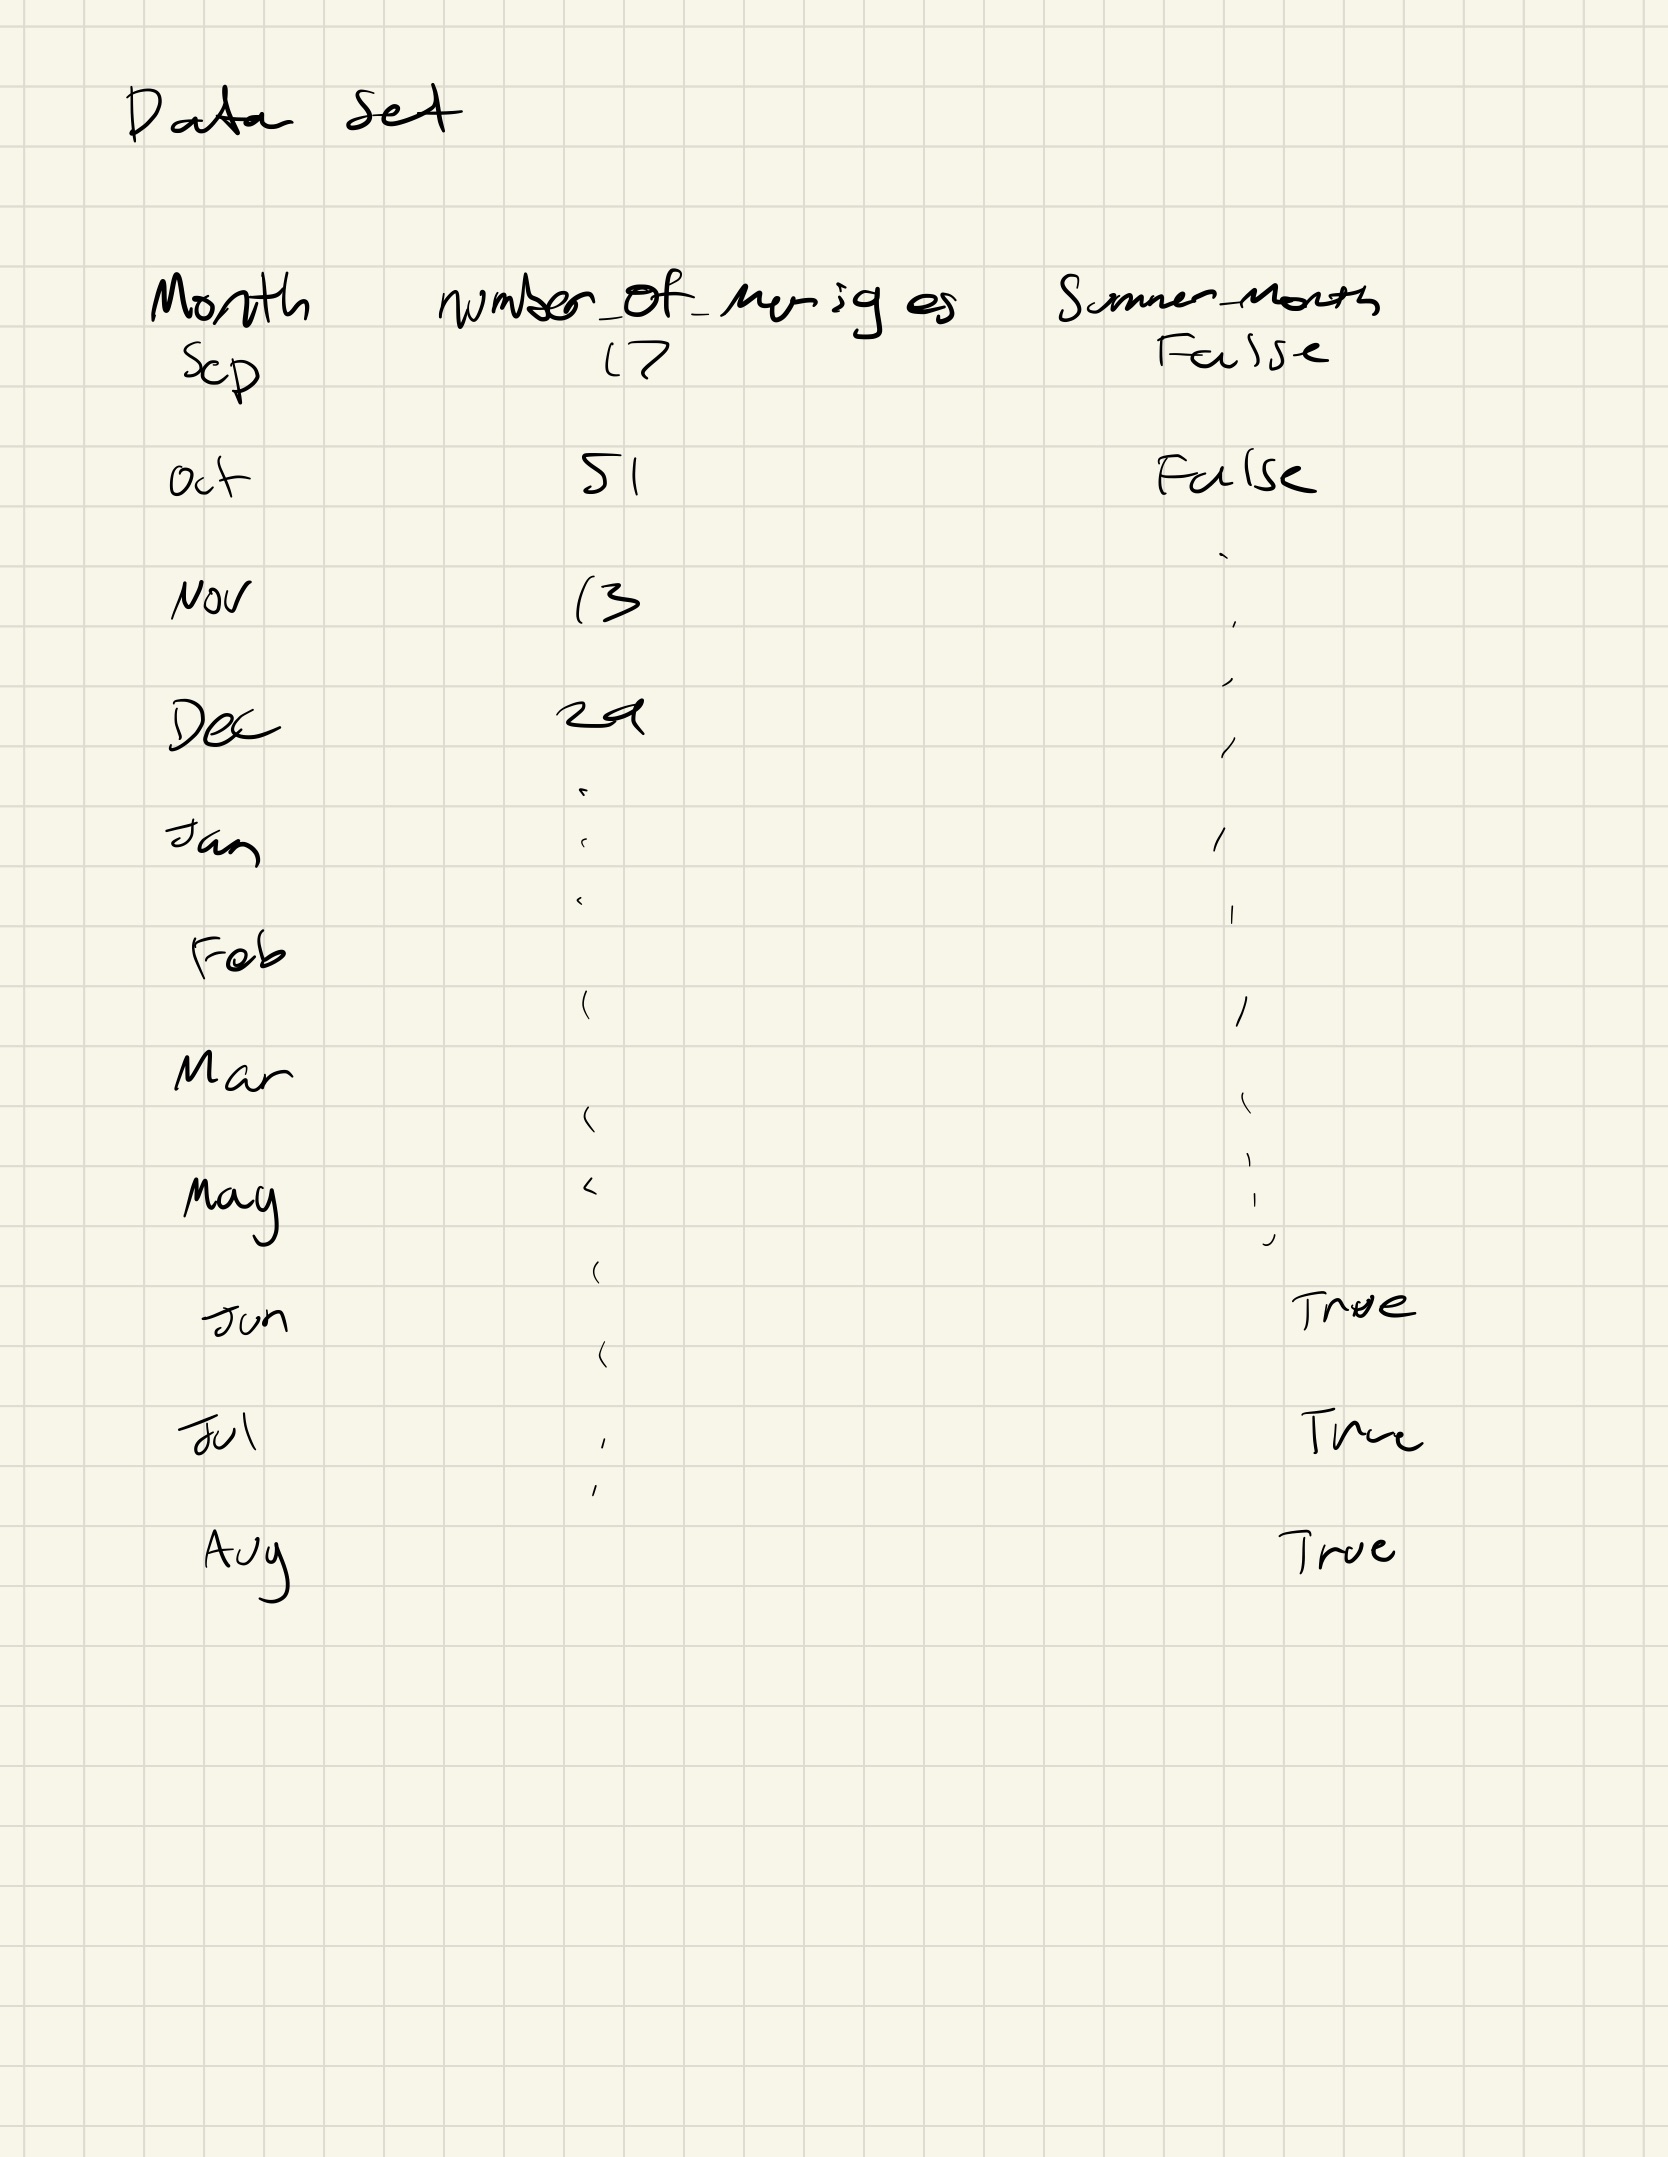 Data Set
Month number_of_marriages Summer_Month
Sep 17 False
Oct 51 False
Nov 13
Dec 29
Jan
Feb
Mar
May
Jun True
Jul True
Aug True